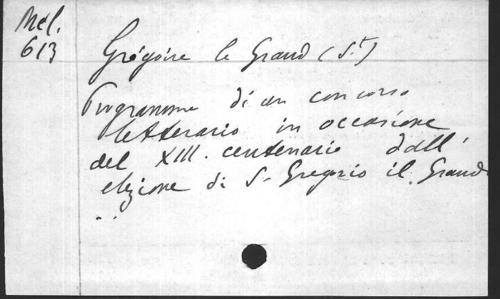 Mél.
613
Grégoire le Grand (St)
Programme di un concorso
letterario in occasione
del XIII. centenario dall'
elezione di S. Gregorio il Grand
..